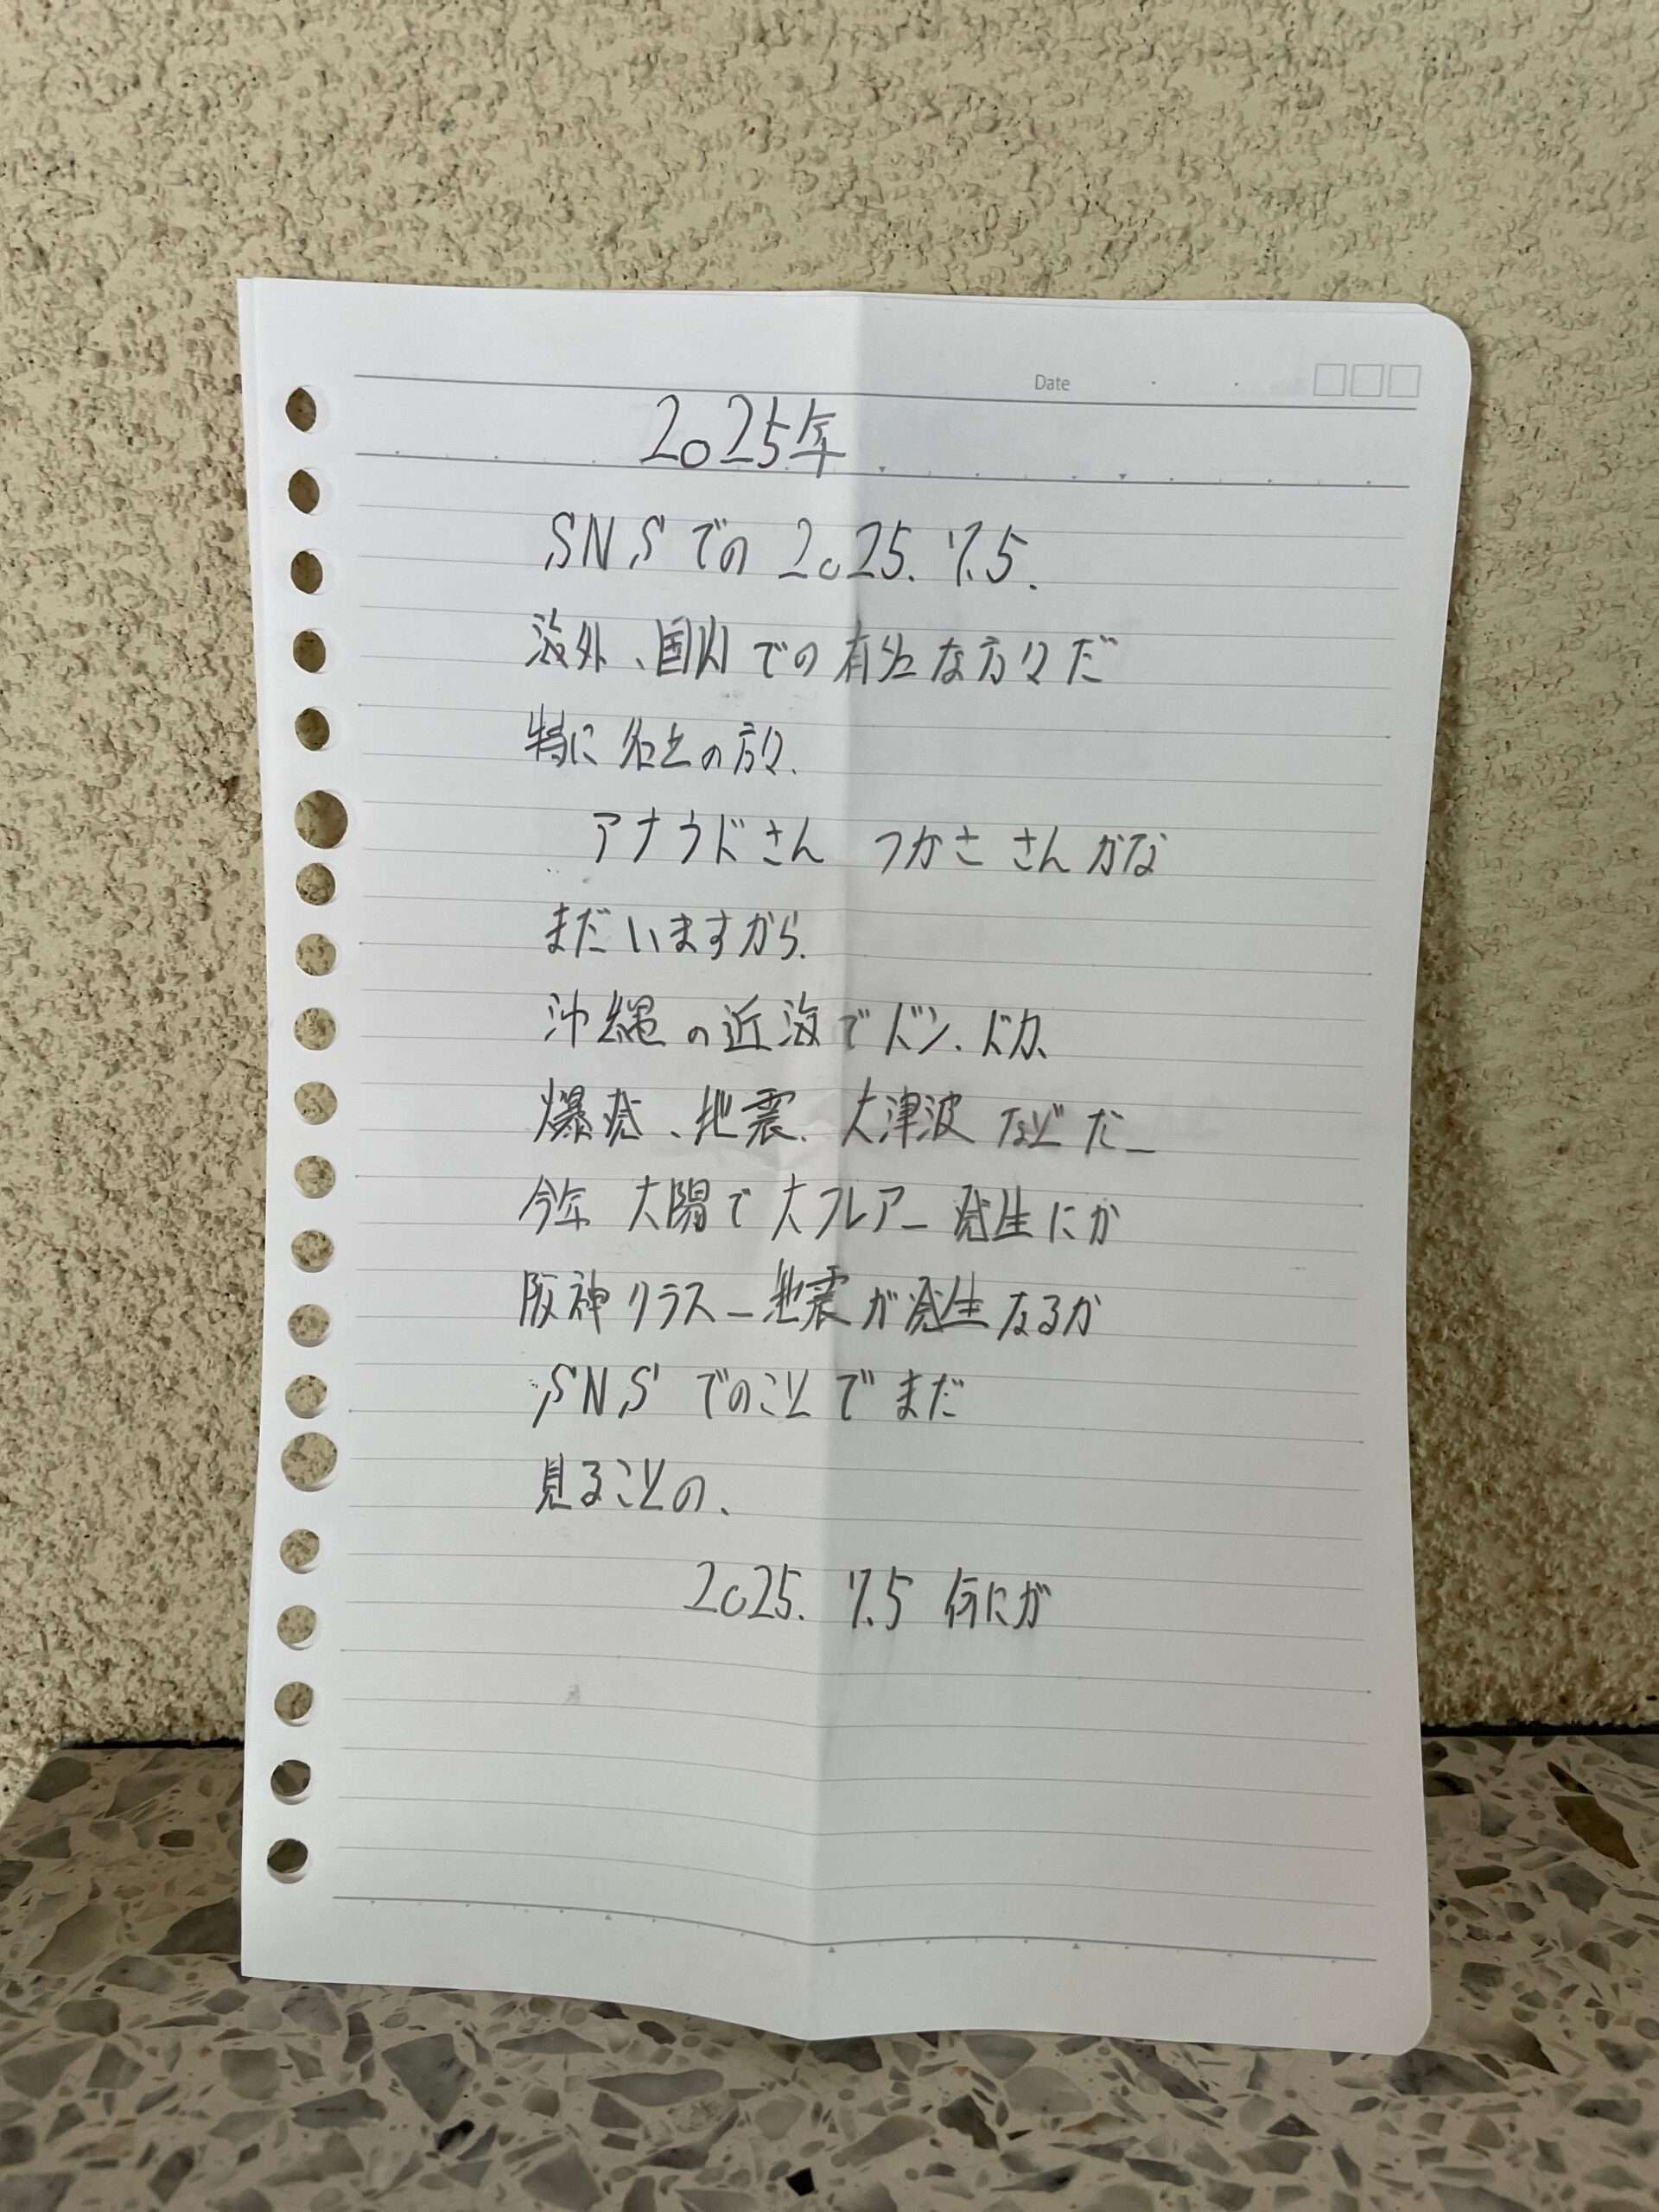 Date
2025年
SNSでの 2025. 7.5.
海外、国内での有名な方々だ
特に名上の方々.
アナウドさん つかさ さんかな
まだいますから.
沖縄の近海でドン、ドカ、
爆発、地震、大津波などだー
今年 大陽で大フレアー発生にか
阪神クラスー地震が発生なるか
SNSでのことでまだ
見ることの、
2025. 7.5 何にが